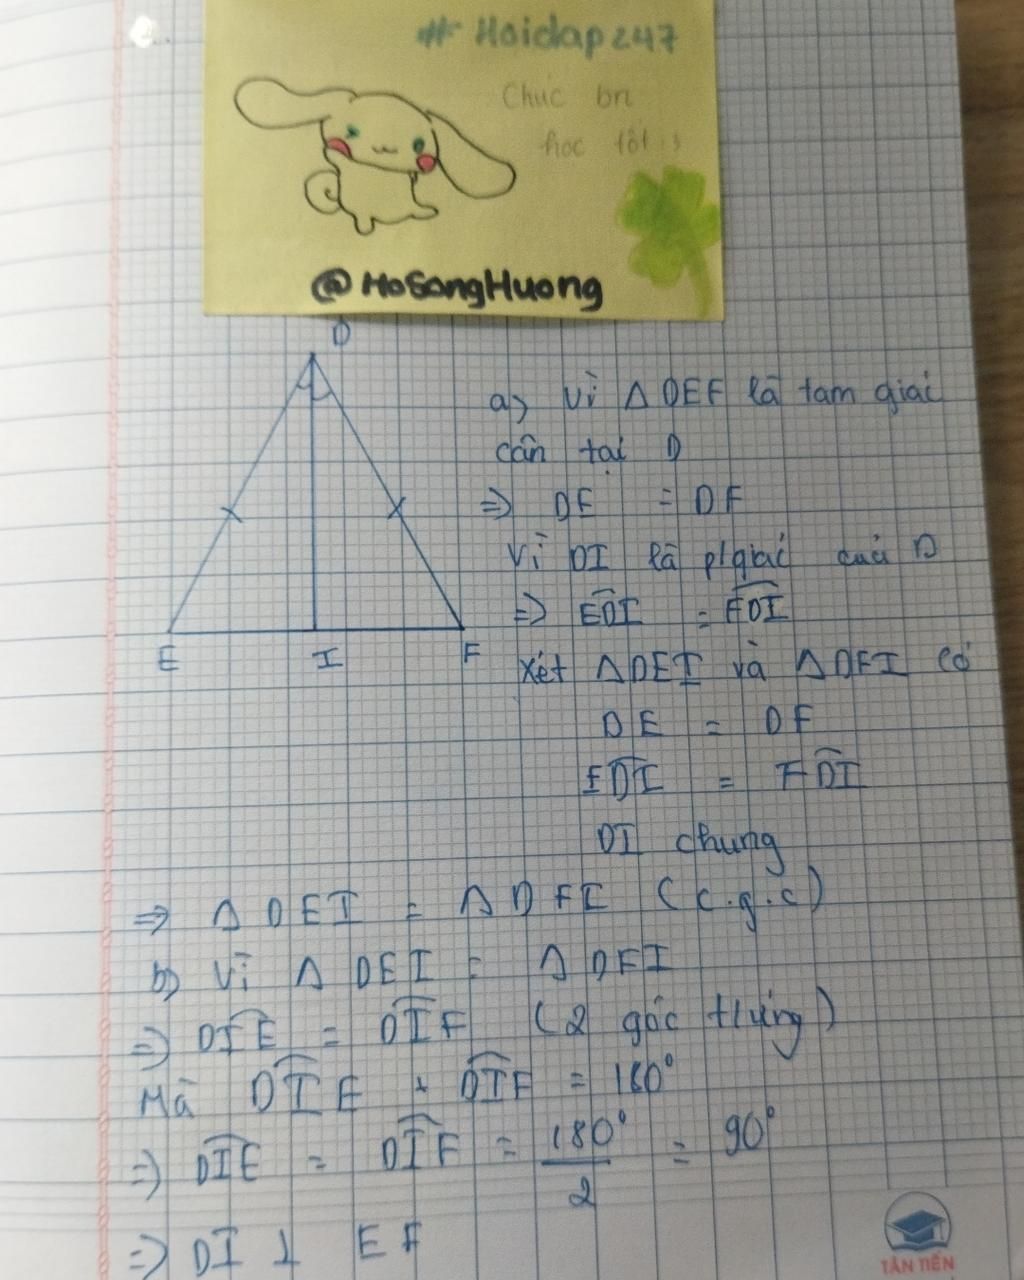 # Hoidap247
Chúc bn
học tốt :3
@HoSongHuong
D
E I F
a) Vì Δ DEF là tam giác
cân tại D
=> DE = DF
Vì DI là p/giác của D
=> EDI = FDI
Xét Δ DEI và Δ DFI có
DE = DF
EDI = FDI
DI chung
=> Δ DEI = Δ DFI (c.g.c)
b) Vì Δ DEI = Δ DFI
=> DIE = DIF (2 góc tứng)
Mà DIE + DIF = 180°
=> DIE = DIF = 180°/2 = 90°
=> DI ⊥ EF
TÂN TIẾN